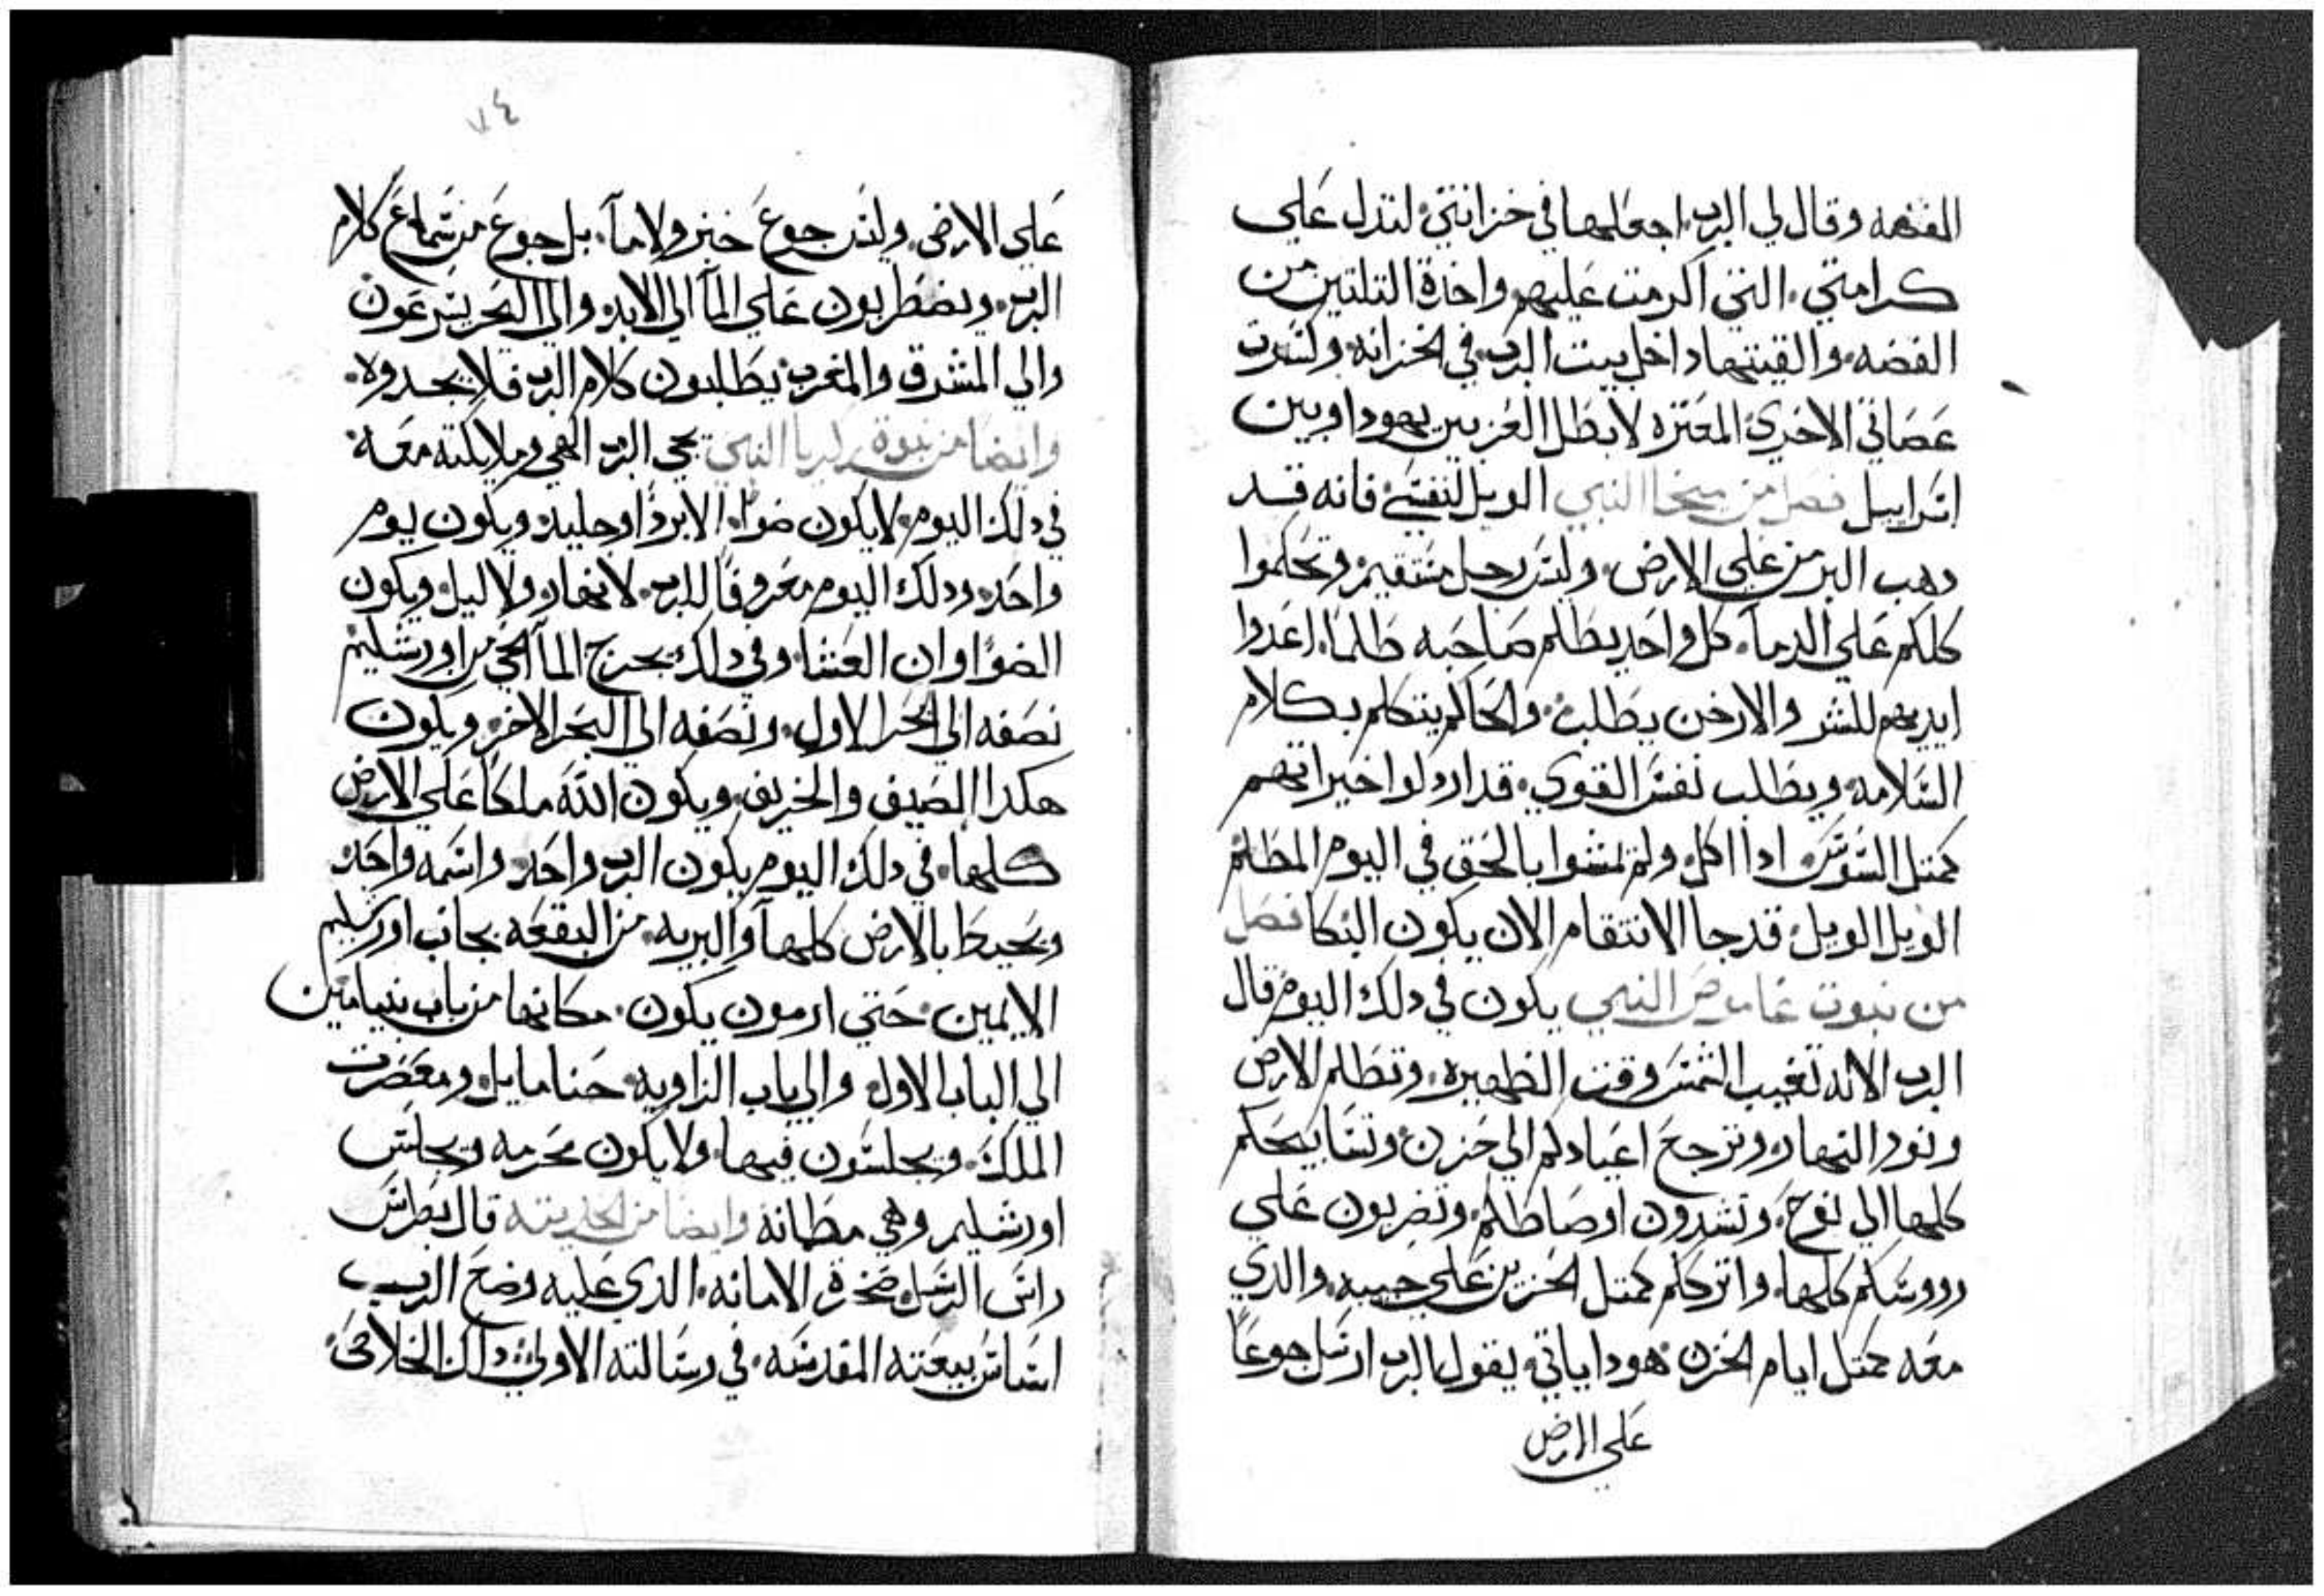 الفضه وقال لي الرب اجعلها في خزانتي لتدل علي
كرامتي. التي اكرمت عليهم واخدة التلتين من
الفضه. والقيتها داخل بيت الرب في الخزانه. ولسرت
عصاتي الاخري المعتزه لابطل العز بين يهودا وبين
اسراييل فصل من ميخا النبي الويل لنفسي فانه قد
دهب البر من علي الارض. وليس رجل مستقيم وتحكموا
كلكم علي الدما. كل واحد يظلم صاحبه ظلما. اعدوا
ايديهم للشر والارخن يطلب. والحاكم يتكلم بكلام
السلامه ويطلب نفس القوي. قد اردلوا خيراتهم
كمتل السوس ادا اكل ولم تمشوا بالحق في اليوم المظلم
الويل الويل قد جا الانتقام الان يكون البكا فصل
من نبوت عاموص النبي يكون في دلك اليوم قال
الرب الاله تغيب الشمس وقت الظهيره. وتظلم الارض
ونور النهار وترجع اعيادكم الي حزن. وتسابيحكم
كلها الي نوح. وتشدون اوصاطكم. وتضربون علي
رووسكم كلها. واترككم كمتل الحزين علي حبيبه. والدي
معه كمتل ايام الحزن هودا ياتي يقول الرب ارسل جوعاً
علي الارض
٧٤
علي الارض. وليس جوع خبز ولا مآ. بل جوع من سماع كلام
الرب. ويضطربون علي المآ الي الابد والي البحر يسرعون
والي المشرق والمغرب يطلبون كلام الرب فلا يجدوه.
وايضا من نبوة زكريا النبي يجي الرب الهي وملايكته معه
في دلك اليوم لا يكون ضوا. الا برداً وجليد. ويكون يوم
واحد ودلك اليوم معروفاً للرب. لا نهار ولا ليل ويكون
الضواً اوان العشا. وفي دلك يخرج المآ الحي من اورشليم
نصفه الي البحر الاول. ونصفه الي البحر الاخر ويكون
هكدا الصيف والخريف. ويكون الله ملكاً علي الارض
كلها. في دلك اليوم يكون الرب واحد واسمه واحد
ويحيط بالارض كلها والبريه. من البقعه بجانب اورشليم
الايمين. حتي ارمون يكون. مكانها من باب بنيامين
الي الباب الاول والي باب الزاويه حنامايل ومعصرت
الملك. ويجلسون فيها. ولا يكون محرمه ويجلس
اورشليم وهي مطمانه وايضا من الحديته قال بطرس
راس الرسل صخرة الامانه. الدي عليه وضع الرب
اساس بيعته المقدسه. في رسالته الاولي داك الخلاص.